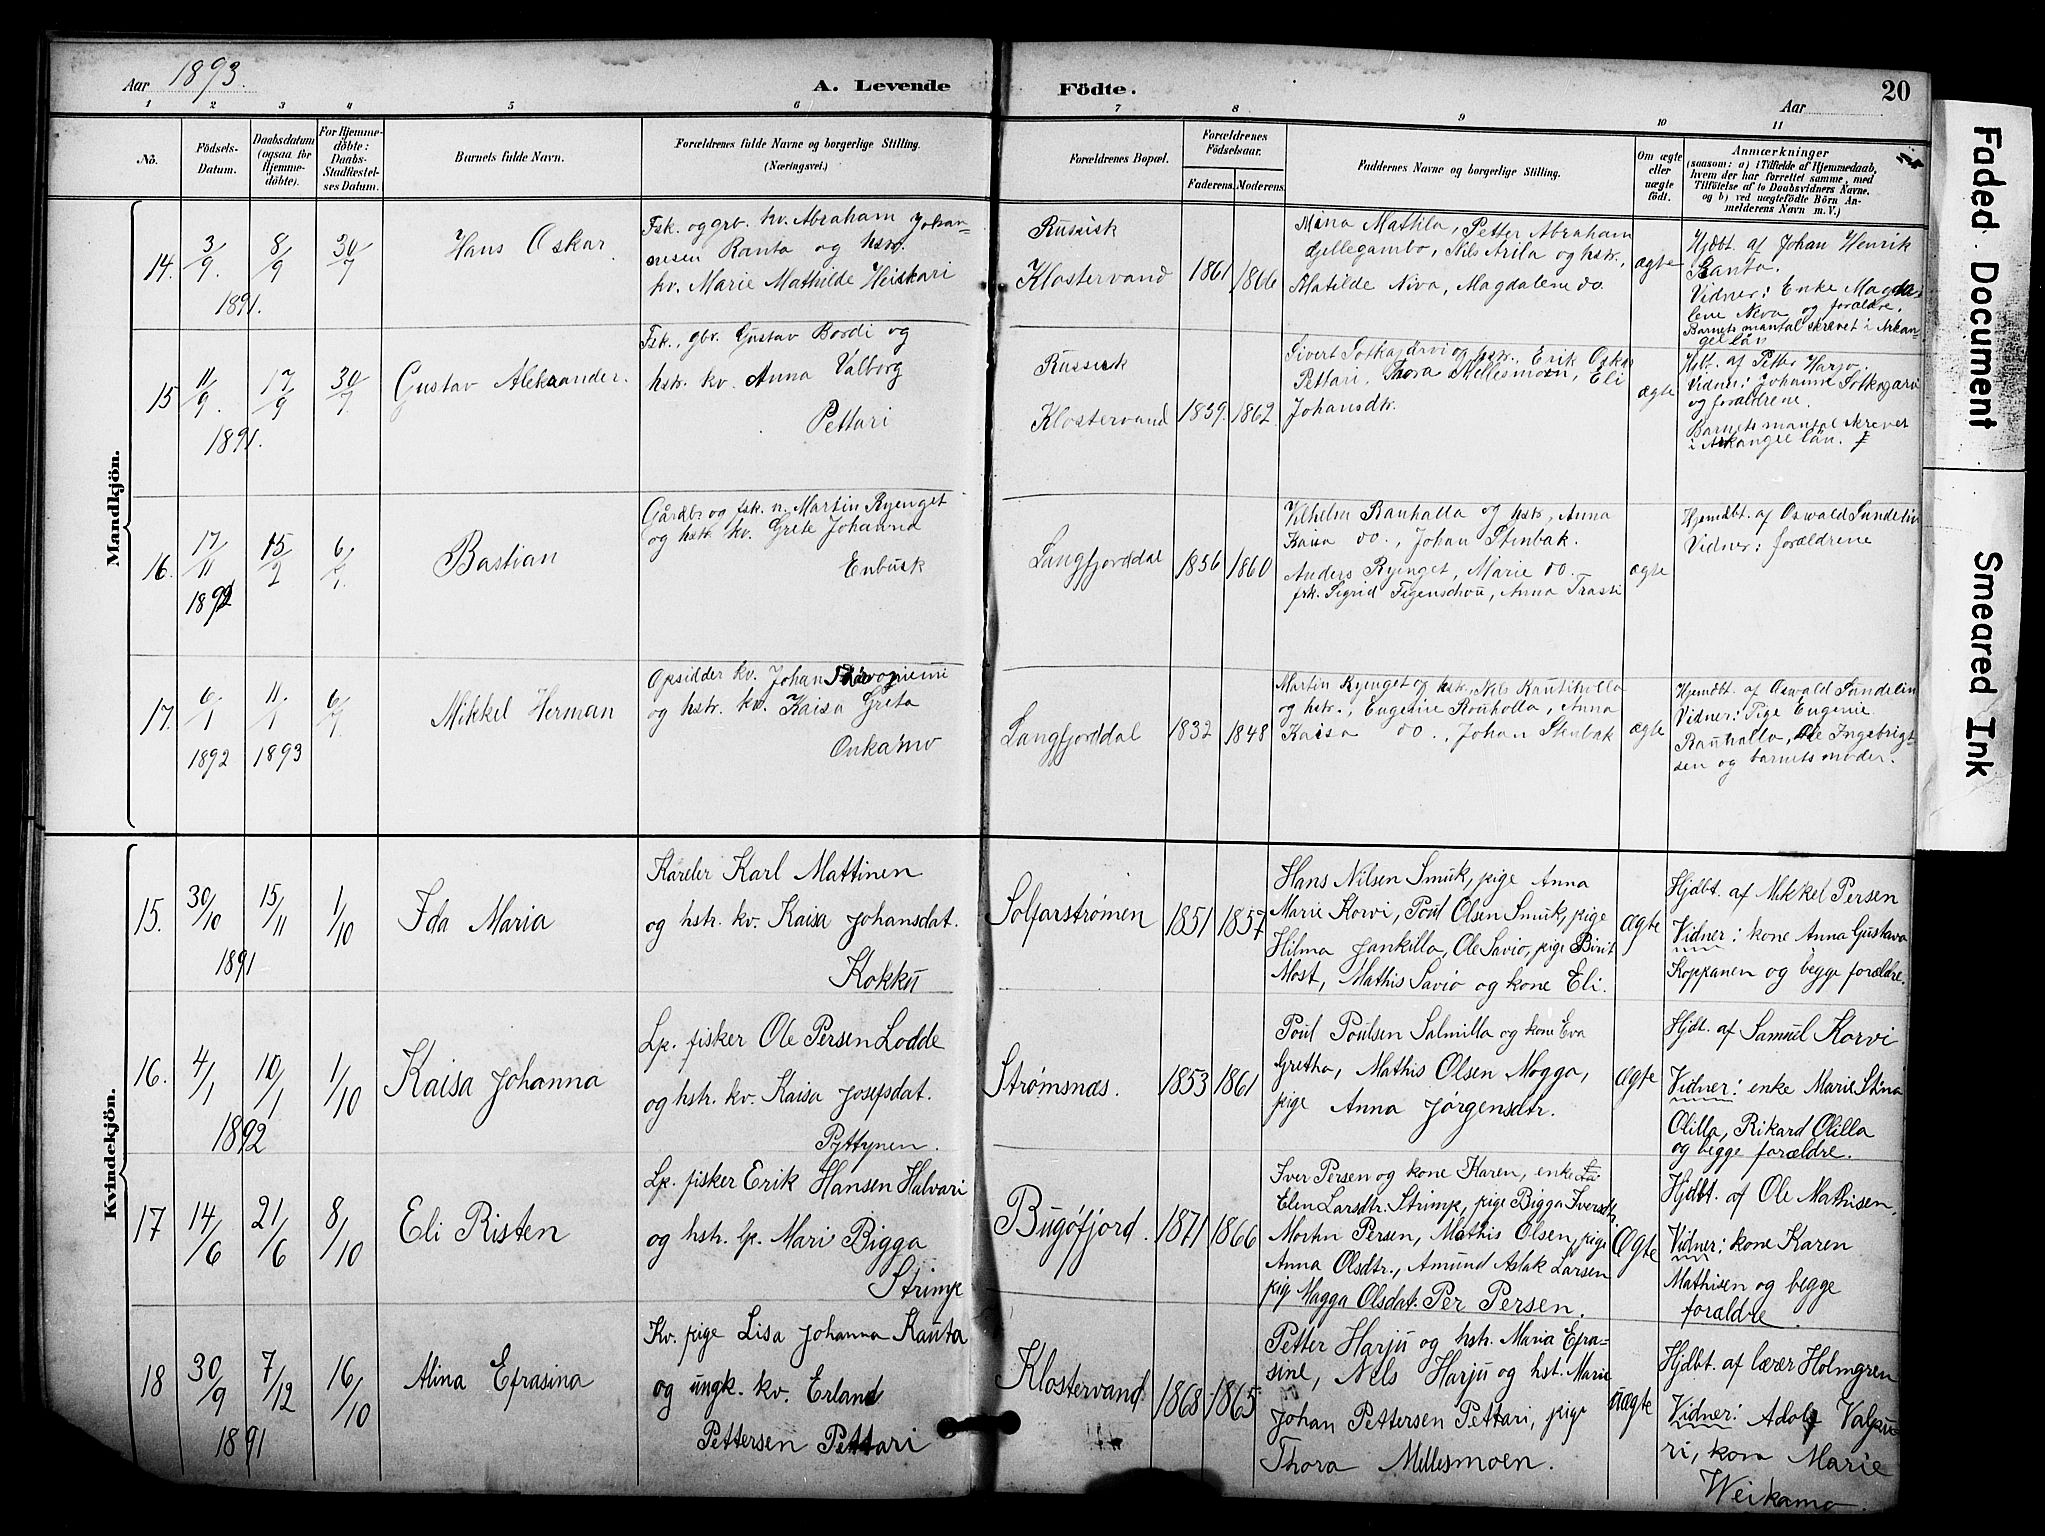 Aar 1893.
A. Levende
Födte.
Aar
20
1 2 3 4 5 6 7 8 9 10 11
No.
Födsels-
Datum.
Daabsdatum
(ogsaa for
Hjemme-
döbte).
For Hjemme-
döbte:
Daabs-
Stadfæstel-
ses Datum.
Barnets fulde Navn.
Forældrenes fulde Navne og borgerlige Stilling.
(Næringsvei.)
Forældrenes Bopæl.
Forældrenes
Födselsaar.
Faderens. Moderens.
Faddernes Navne og borgerlige Stilling.
Om ægte
eller
uægte
födt.
Anmærkninger
(saasom: a) i Tilfælde af Hjemmedaab,
hvem der har forrettet samme, med
Tilföielse af to Daabsvidners Navne.
og b) ved uægtefödte Börn An-
melderens Navn m. V.)
Mandkjön.
14. 3/9 1891. 8/9 30/7
Hans Oskar
Fsk. og grb. kv. Abraham Johan-
nesen Ranta og hstr.
kv. Marie Mathilde Heiskari
Russisk
Klostervand
1861 1866
Mina Mathila, Petter Abraham
Kjellegambo, Nils Arila og hstr.,
Matilde Niva, Magdalene do.
ægte
Hjdbt. af Johan Henrik
Ranta.
Vidner: Enke Magda-
lene Neva og forældre.
Barnets mantal skrevet i Arkan-
gel län
15 11/9 1891. 17/9 30/7
Gustav Aleksander.
Fsk., gbr. Gustav Bordi og
hstr. kv. Anna Valborg
Pettari
Russisk
Klostervand
1839. 1862
Sivert Sotkajärvi og hstr., Erik Oskar
Pettari, Thora Mellesmoen, Eli
Johansdtr.
ægte
Hjbt. af Petter Harjo.
Vidner: Johanne Sotkajarvi
og forældrene.
Barnets mantal skrevet
i Arkangel län.
16. 17/11 1892 15/2 6/7.
Bastian
Gårdbr og fsk. n. Martin Ryenget
og hstr. kv. Grete Johanna
Enbusk
Langfjorddal
1856 1860
Vilhelm Rauhalla og hstr, Anna
Kaisa do., Johan Stenbak.
Anders Ryenget, Marie do.
frk. Sigrid Figenschou, Anna Trasti
ægte
Hjemdbt. af Oswald Sundelin
Vidner: forældrene
17. 6/1 1892 11/1 1893 6/7.
Mikkel Herman
Opsidder kv. Johan
og hstr. kv. Kaisa Greta
Onkamo
Langfjorddal
1832 1848
Martin Ryenget og hstr, Nils Rautiholla
og hstr., Eugenie Rouholla, Anna
Kaisa do., Johan Stenbak
ægte
Hjemdbt. af Oswald Sundelin
Vidner: Pige Eugenie
Rauhalla, Ole Ingebrigt-
sen og barnets moder.
Kvindekjön.
15. 30/10 1891 15/11 1/10
Ida Maria
Kareler Karl Mattinen
og hstr. kv. Kaisa Johansdat.
Kokku
Solfarstrømen
1851 1857
Hans Nilsen Smuk, pige Anna
Marie Korvi, Poul Olsen Smuk, pige
Hilma Jankilla, Ole Savio, pige Birit
Most, Mathis Savio og kone Eli.
ægte
Hjdbt. af Mikkel Persen
Vidner: kone Anna Gustava
Koppanen og begge forældre.
16. 4/1 1892 10/1 1/10
Kaisa Johanna
Lp. fisker Ole Persen Lodde
og hstr. kv. Kaisa Josefsdat.
Pyttynen.
Strømsnæs.
1853 1861
Poul Poulsen Salmilla og kone Eva
Gretha, Mathis Olsen Mogga,
pige Anna Jørgensdtr.
ægte
Hjdt. af Samuel Korvi
Vidner: enke Marie Stina
Olilla, Rikard Olilla
og begge forældre.
17 14/6 21/6 8/10
Eli Risten
Lp. fisker Erik Hansen Halvari
og hstr. lp. Mari Bigga
Strimp
Bugøfjord.
1871 1866
Iver Persen og kone Karen, enke
Elen Larsdtr. Strimp, pige Bigga Iversdtr.
Morten Persen, Mathis Olsen, pige
Anna Olsdtr., Amund Aslak Larsen
pig Magga Olsdat. Per Persen.
ægte
Hjdbt. af Ole Mathisen,
Vidner: kone Karen
Mathisen og begge
forældre.
18 30/9 1891 7/12 16/10
Alina Efrasina
Kv. pige Lisa Johanna Rauta
og ungk. kv. Erland
Pettersen Pettari
Klostervand.
1868 1865
Petter Harju og hstr. Maria Efra-
sine, Nels Harju og hst. Marie
Johan Pettersen Pettari, pige
Thora Mellesmoen.
uægte
Hjdbt. af lærer Holmgren
Vidner: Adolf Valpu-
ri, kone Marie
Weikamo.
Faded Document
Smeared Ink